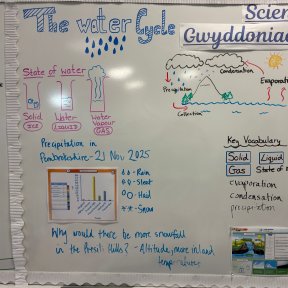 The water Cycle
Scien
Gwyddonia
State of water
Solid
ICE
Water
LIQUID
Water
Vapour
GAS
Condensation
Evaporati
Precipitation
Collection
Precipitation in
Pembrokeshire - 21 Nov 2025
- Rain
- Sleet
- Hail
- Snow
Why would there be more snowfall
in the Preseli Hills? - Altitude, more inland
temperature
Key Vocabulary
Solid
Liquid
Gas
State of m
evaporation
condensation
precipitation